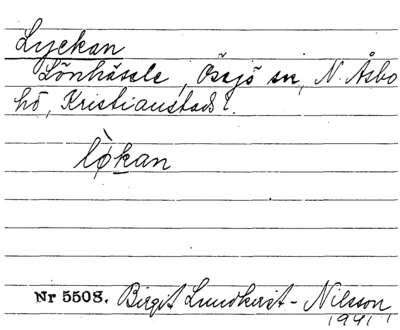 Lyckan
Lönhässle, Össjö sn, N. Åsbo
hd, Kristianstads l.
lø̀kan
Nr 5508. Birgit Lundkvist-Nilsson
1941